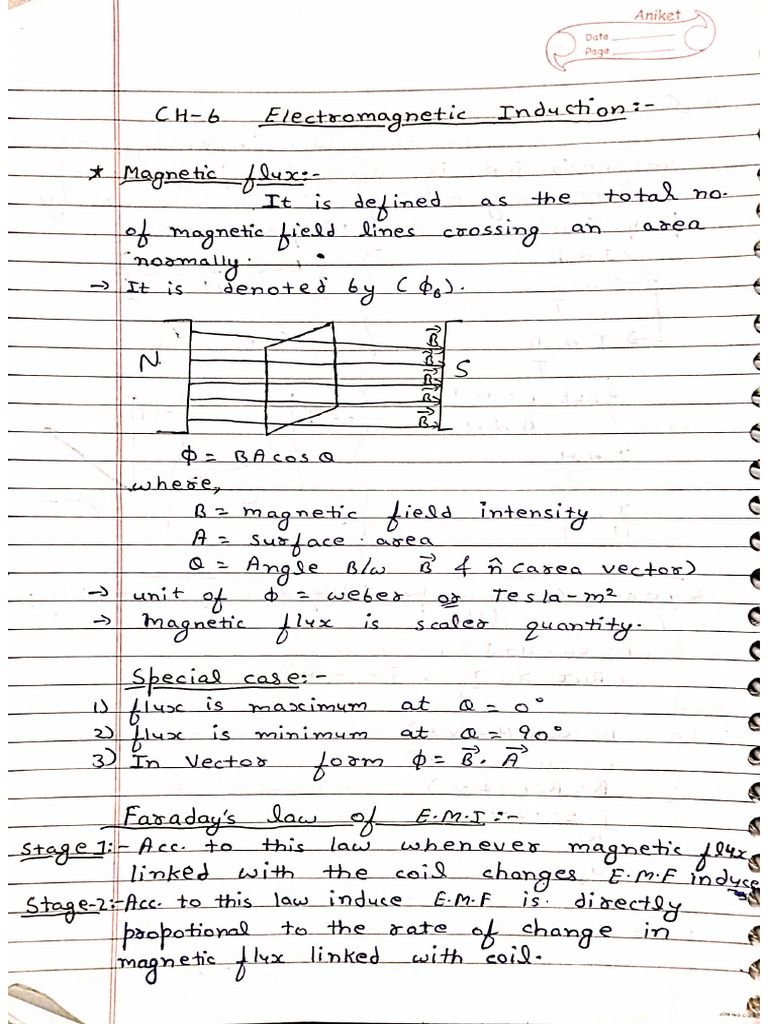 Aniket
Date
Page
CH-6 Electromagnetic Induction:-
* Magnetic flux:-
It is defined as the total no.
of magnetic field lines crossing an area
normally.
→ It is denoted by (ϕB).
N
S
B⃗
B⃗
B⃗
B⃗
B⃗
ϕ = BA cos θ
where,
B = magnetic field intensity
A = surface area
θ = Angle B/w B⃗ & n̂ (area vector)
→ unit of ϕ = weber or Tesla-m²
→ Magnetic flux is scaler quantity.
Special case:-
1) flux is maximum at θ = 0°
2) flux is minimum at θ = 90°
3) In Vector form ϕ = B⃗. A⃗
Faraday's law of E.M.I:-
Stage 1:- Acc. to this law whenever magnetic flux
linked with the coil changes E.M.F induce
Stage-2:- Acc. to this law induce E.M.F is directly
propotional to the rate of change in
magnetic flux linked with coil.